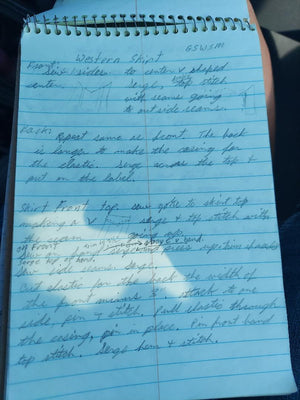 Western Skirt GSWSM
Front:
Sew sides to center & shaped
center. Serge, top stitch
with seams going
to out side seams.
Back: Repeat same as front. The back
is longer to make the casing for
the elastic. Serge across the top &
put on the label.
Skirt Front top. Sew yoke to skirt top
making a V serge & top stitch with
the seam going up.
on Front
band.
Serge top of band.
Sew side seams, serge.
Cut elastic for the back the width of
the front minus attach to one
side, pin & stitch. Pull elastic through
the casing, pin in place. Pin front band
top stitch. Serge hem & stitch.